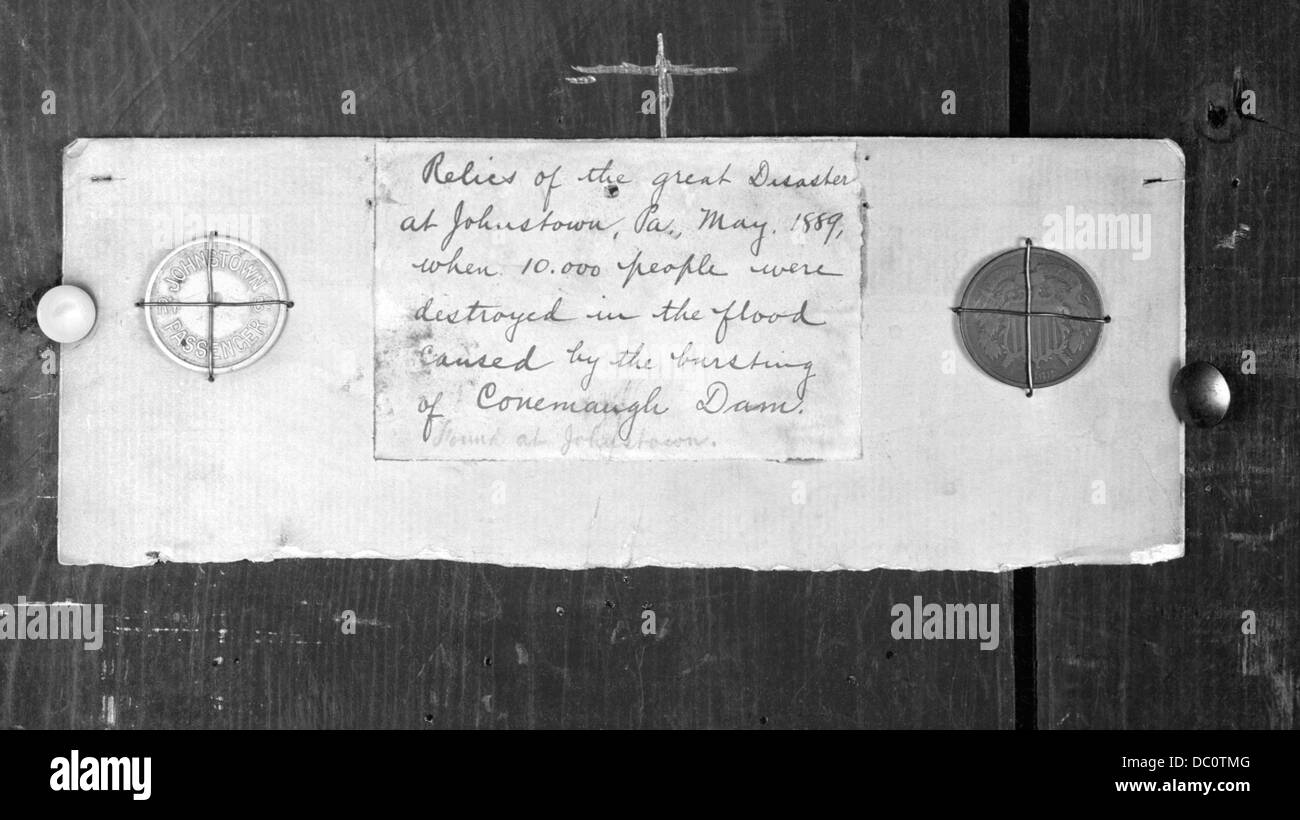 Relics of the great Disaster
at Johnstown, Pa., May. 1889,
when 10.000 people were
destroyed in the flood
caused by the bursting
of Conemaugh Dam.
Found at Johnstown.
JOHNSTOWN
PASSENGER
alamy
alamy
a a a a
alamy
Image ID: DC0TMG
www.alamy.com